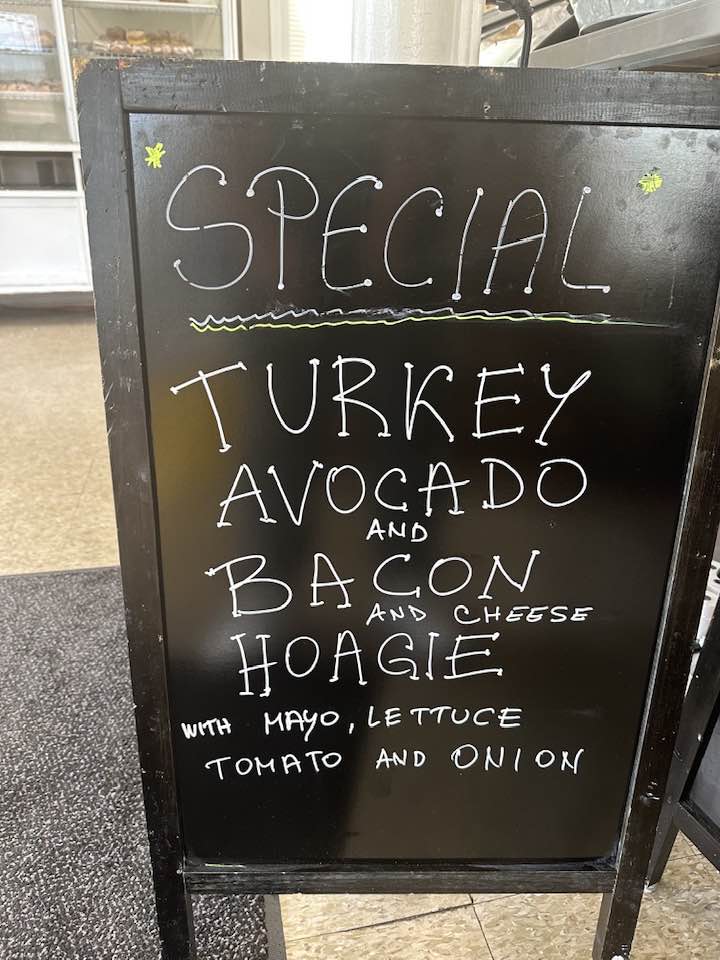 SPECIAL
TURKEY
AVOCADO
AND
BACON
AND CHEESE
HOAGIE
WITH MAYO, LETTUCE
TOMATO AND ONION